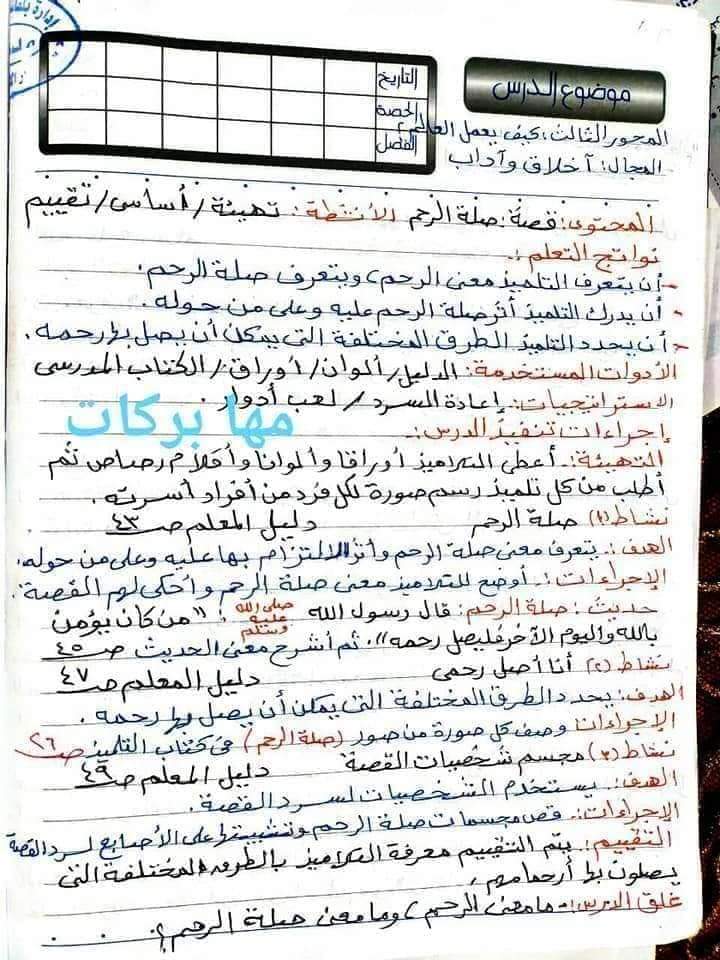 إدارة
موضوع الدرس
التاريخ
الحصة
الفصل
المحور الثالث: كيف يعمل العالم؟
المجال: أخلاق وآداب
المحتوى: قصة: صلة الرحم الأنشطة: تهيئة/ أساسى/ تقييم
نواتج التعلم:-
- أن يتعرف التلميذ معنى الرحم، ويتعرف صلة الرحم.
- أن يدرك التلميذ أثر صلة الرحم عليه وعلى من حوله.
- أن يحدد التلميذ الطرق المختلفة التى يمكن أن يصل بها رحمه.
الأدوات المستخدمة: الدليل/ ألوان/ أوراق/ الكتاب المدرسى
الاستراتيجيات: إعادة السرد/ لعب أدوار.
مها بركات
إجراءات تنفيذ الدرس:-
التهيئة:- أعطى التلاميذ أوراقا وألوانا وأقلام رصاص ثم
أطلب من كل تلميذ رسم صورة لكل فرد من أفراد أسرته.
نشاط (١) صلة الرحم دليل المعلم صـ ٤٣
الهدف:- يتعرف معنى صلة الرحم وأثر الالتزام بها عليه وعلى من حوله.
الإجراءات:- أوضح للتلاميذ معنى صلة الرحم وأحكى لهم القصة.
حديث: صلة الرحم: قال رسول الله صلى الله عليه وسلم: "من كان يؤمن
بالله واليوم الآخر فليصل رحمه". ثم أشرح معنى الحديث صـ ٤٥
نشاط (٢) أنا أصل رحمى دليل المعلم صـ ٤٧
الهدف: يحدد الطرق المختلفة التى يمكن أن يصل بها رحمه.
الإجراءات: وصف كل صورة من صور (صلة الرحم) فى كتاب التلميذ صـ ٢٦
نشاط (٣) مجسم شخصيات القصة دليل المعلم صـ ٤٩
الهدف: يستخدم الشخصيات لسرد القصة.
الإجراءات: قص مجسمات صلة الرحم وتثبيتها على الأصابع لسرد القصة
التقييم: يتم التقييم معرفة التلاميذ بالطرق المختلفة التى
يصلون بها أرحامهم.
غلق الدرس:- مامعنى الرحم؟ وما معنى صلة الرحم؟